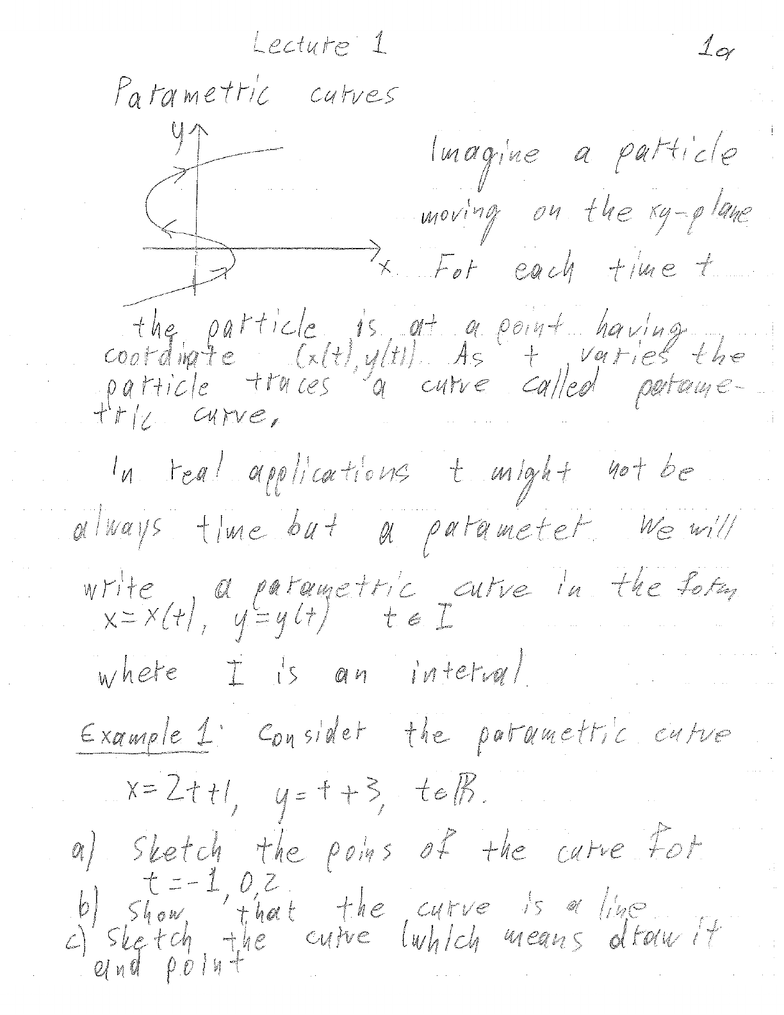 Lecture 1
1a
Parametric curves
y
x
Imagine a particle
moving on the xy-plane
For each time t
the particle is at a point having
coordinate (x(t), y(t)). As t varies the
particle traces a curve called parame-
tric curve.
In real applications t might not be
always time but a parameter. We will
write a parametric curve in the form
x=x(t), y=y(t) t∈I
where I is an interval.
Example 1: Consider the parametric curve
x=2t+1, y=t+3, t∈ℝ.
a) Sketch the poins of the curve for
t=-1, 0, 2
b) Show that the curve is a line
c) Sketch the curve (which means draw it
and point